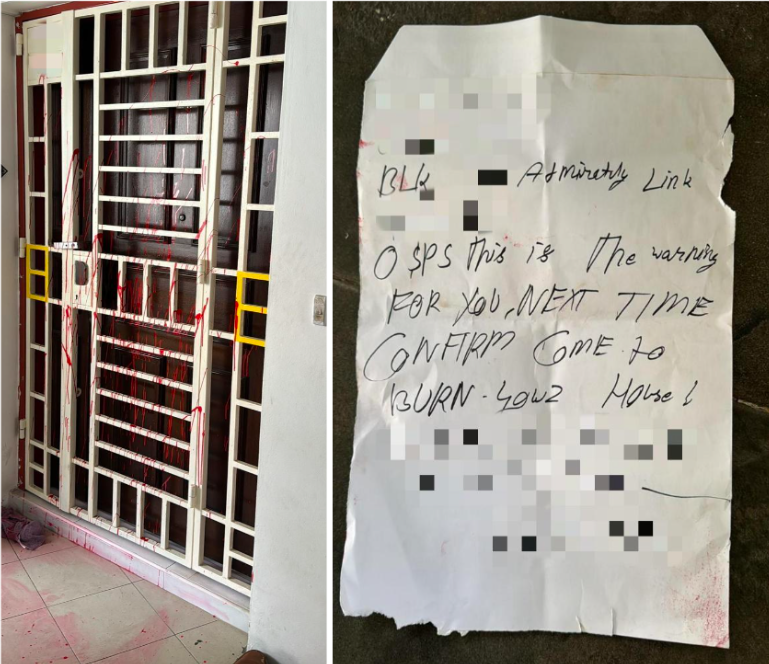 BLK Admiralty Link
O $P$ This is The warning
FOR YOU, NEXT TIME
CONFIRM COME to
BURN-YOUR House!